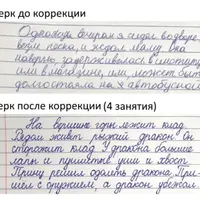 ерк до коррекции
Однажды вечером я сидел во дворе,
возле песка, и ждал маму. Она
наверно, задерживалась в институте,
или в магазине, или, может быть
долго стояла на автобусной
ерк после коррекции (4 занятия)
На вершине горы лежит клад.
Рядом живёт рыжий дракон. Он
сторожит клад. У дракона большие
лапы и пушистые уши и хвост.
Принц решил одолеть дракона. При-
шел с оружием, а дракон убежал.